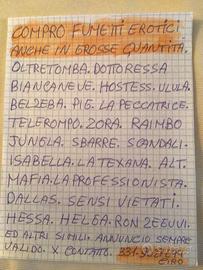 COMPRO FUMETTI EROTICI
ANCHE IN GROSSE QUANTITÀ.
OLTRETOMBA. DOTTORESSA
BIANCANEVE. HOSTESS. ULULA.
BELZEBA. PIG. LA PECCATRICE.
TELEROMPO. ZORA. RAIMBO
JUNGLA. SBARRE. SCANDALI.
ISABELLA. LA TEXANA. ALT.
MAFIA. LA PROFESSIONISTA.
DALLAS. SENSI VIETATI.
HESSA. HELGA. RON
ED ALTRI SIMILI. ANNUNCIO SEMPRE
VALIDO. X CONTATO.
CIRO